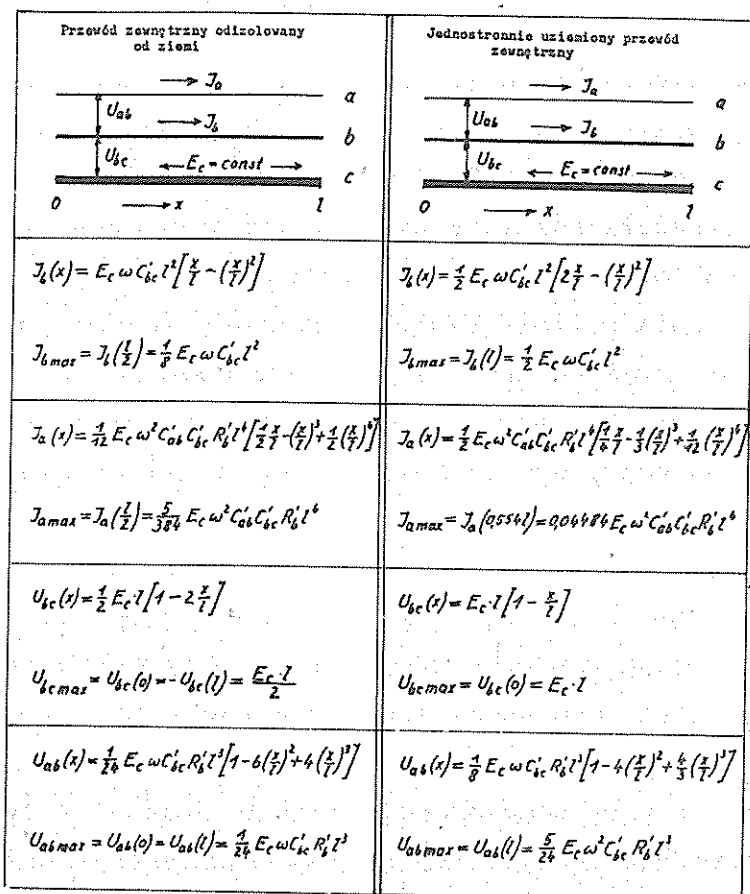 Przewód zewnętrzny odizolowany
od ziemi
J_a
a
U_ab
J_b
b
U_bc
E_c = const
c
0 x l
Jednostronnie uziemiony przewód
zewnętrzny
J_a
a
U_ab
J_b
b
U_bc
E_c = const
c
0 x l
J_b(x) = E_c ω C'_bc l² [x/l - (x/l)²]
J_b max = J_b(l/2) = 1/8 E_c ω C'_bc l²
J_b(x) = 1/2 E_c ω C'_bc l² [2 x/l - (x/l)²]
J_b max = J_b(l) = 1/2 E_c ω C'_bc l²
J_a(x) = 1/12 E_c ω² C'_ab C'_bc R'_b l⁴ [1/2 x/l - (x/l)³ + 1/2 (x/l)⁴]
J_a max = J_a(l/2) = 5/384 E_c ω² C'_ab C'_bc R'_b l⁴
J_a(x) = 1/2 E_c ω² C'_ab C'_bc R'_b l⁴ [1/4 x/l - 1/3 (x/l)³ + 1/12 (x/l)⁴]
J_a max = J_a(0,554 l) = 0,04484 E_c ω² C'_ab C'_bc R'_b l⁴
U_bc(x) = 1/2 E_c · l [1 - 2 x/l]
U_bc max = U_bc(0) = -U_bc(l) = E_c · l / 2
U_bc(x) = E_c · l [1 - x/l]
U_bc max = U_bc(0) = E_c · l
U_ab(x) = 1/24 E_c ω C'_bc R'_b l³ [1 - 6 (x/l)² + 4 (x/l)³]
U_ab max = U_ab(0) = U_ab(l) = 1/24 E_c ω C'_bc R'_b l³
U_ab(x) = 1/8 E_c ω C'_bc R'_b l³ [1 - 4 (x/l)² + 4/3 (x/l)³]
U_ab max = U_ab(l) = 5/24 E_c ω² C'_bc R'_b l³